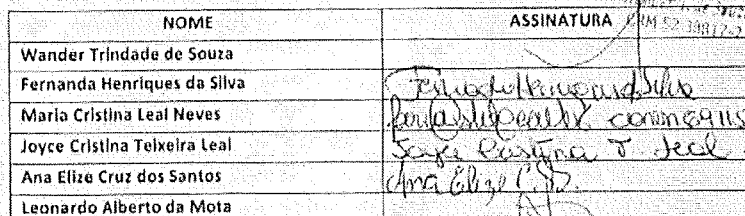 NOME ASSINATURA
Wander Trindade de Souza
Fernanda Henriques da Silva
Maria Cristina Leal Neves
Joyce Cristina Teixeira Leal Joyce Cristina T. Leal
Ana Elize Cruz dos Santos Ana Elize C.S.
Leonardo Alberto da Mota